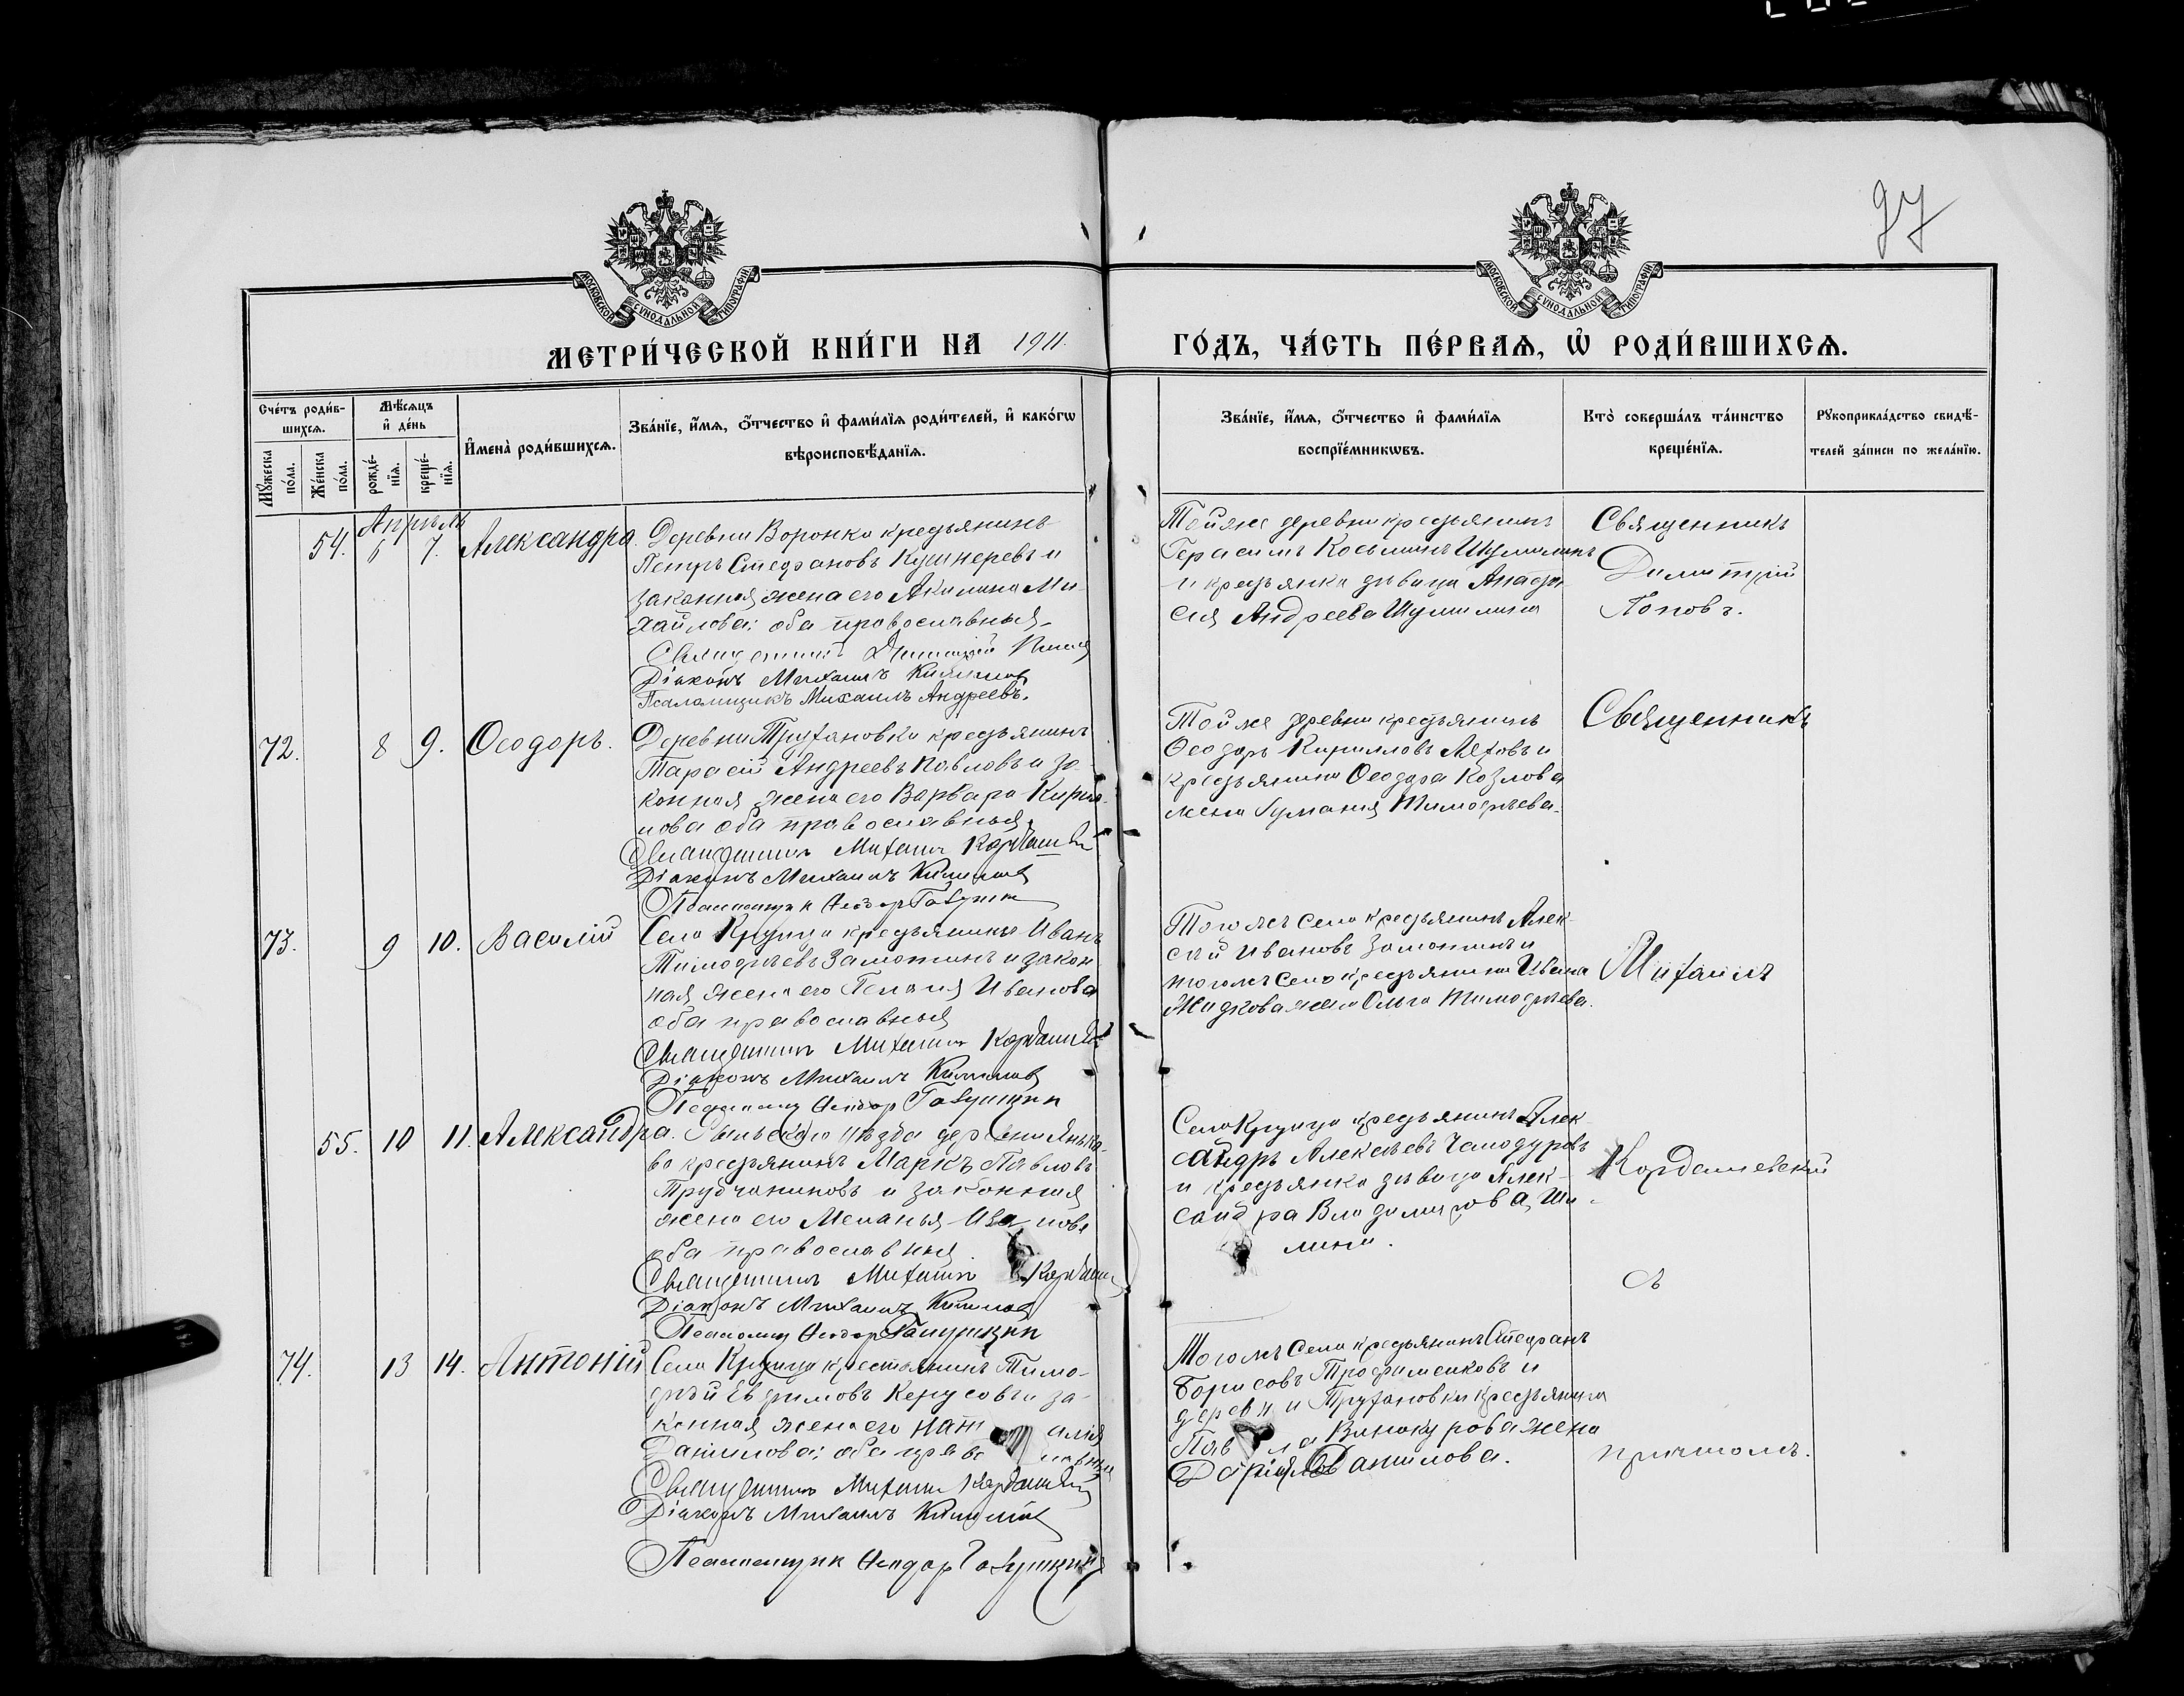 97
МОСКОВСКОЙ СѴНОДАЛЬНОЙ ТИПОГРАФІИ
МОСКОВСКОЙ СѴНОДАЛЬНОЙ ТИПОГРАФІИ
МЕТРИ́ЧЕСКОЙ КНИ́ГИ НА 1911. ГО́ДЪ, ЧА́СТЬ ПЕ́РВАѦ, Ѡ҆ РОДИ́ВШИХСѦ.
Сче́тъ роди́в-
шихсѧ.
Мꙋ́жеска по́ла.
Же́нска по́ла.
Мѣ́сѧцъ и҆ де́нь
рожде́-нїѧ.
креще́-нїѧ.
И҆мена̀ роди́вшихсѧ.
Зва́нїе, и҆́мѧ, ѻ҆́тчество и҆ фами́лїѧ роди́телей, и҆ како́гѡ
вѣроисповѣ́данїѧ.
Зва́нїе, и҆́мѧ, ѻ҆́тчество и҆ фами́лїѧ
воспрїе́мникѡвъ.
Кто̀ соверша́лъ та́инство
креще́нїѧ.
Рꙋкоприкла́дство свидѣ́-
телей за́писи по жела́нїю.
Апрѣль
54. 6 7. Александра.
Деревни Воронка крестьянинъ
Петръ Стефановъ Кушнеревъ и
законная жена его Акилина Ми-
хайлова: оба православныя.
Священникъ Димитрій Поповъ
Діаконъ Михаилъ
Псаломщикъ Михаилъ Андреевъ.
Тойже деревни крестьянинъ
Герасимъ Косьминъ Шумилинъ
и крестьянка дѣвица Анаста-
сия Андреева Шумилина
Священникъ
Димитрій
Поповъ.
72. 8 9. Ѳеодоръ.
Деревни Трухановки крестьянинъ
Тарасій Андреевъ Павловъ и за-
конная жена его Варвара Кирил-
лова оба православныя.
Священникъ Михаилъ Кардашевскій
Діаконъ Михаилъ
Псаломщикъ Ѳеодоръ
Той же деревни крестьянинъ
Ѳеодоръ Кирилловъ Леховъ и
крестьянина Ѳеодора Козлова
жена Тимофѣева.
Священникъ
73. 9 10. Василій
Села Крупца крестьянинъ Иванъ
Тимофѣевъ Замотинъ и закон-
ная жена его Пелагия Иванова
оба православныя
Священникъ Михаилъ Кардашевскій
Діаконъ Михаилъ
Псаломщ Ѳеодоръ
Тогожъ села крестьянинъ Алек-
сѣй Ивановъ Замотинъ и
тогожъ села крестьянина Ивана
Жидкова жена Ольга Тимофѣева.
Михаилъ
55. 10 11. Александра.
Рыльскаго уѣзда деревни
ва крестьянинъ Маркъ Павловъ
Трубчаниновъ и законная
жена его Меланья Иванова
оба православныя.
Священникъ Михаилъ Кардашев
Діаконъ Михаилъ
Псаломщ Ѳеодоръ
Села Крупца крестьянинъ Алек-
сандръ Алексѣевъ Чемодуровъ
и крестьянка дѣвица Алек-
сандра Владимирова Ши-
лина.
Кардашевскій
съ
74. 13 14. Антоній
Села Крупца крестьянинъ Тимо-
фѣй Евфимовъ Керусовъ и за-
конная жена его Наталія
Данилова: оба православныя
Священникъ Михаилъ Кардашевскій
Діаконъ Михаилъ
Псаломщикъ Ѳеодоръ
Тогожъ села крестьянинъ Стефанъ
Борисовъ Трофименковъ и
деревни Трухановки крестьянина
Павла Винокурова жена
Дарія Данилова.
причтомъ.